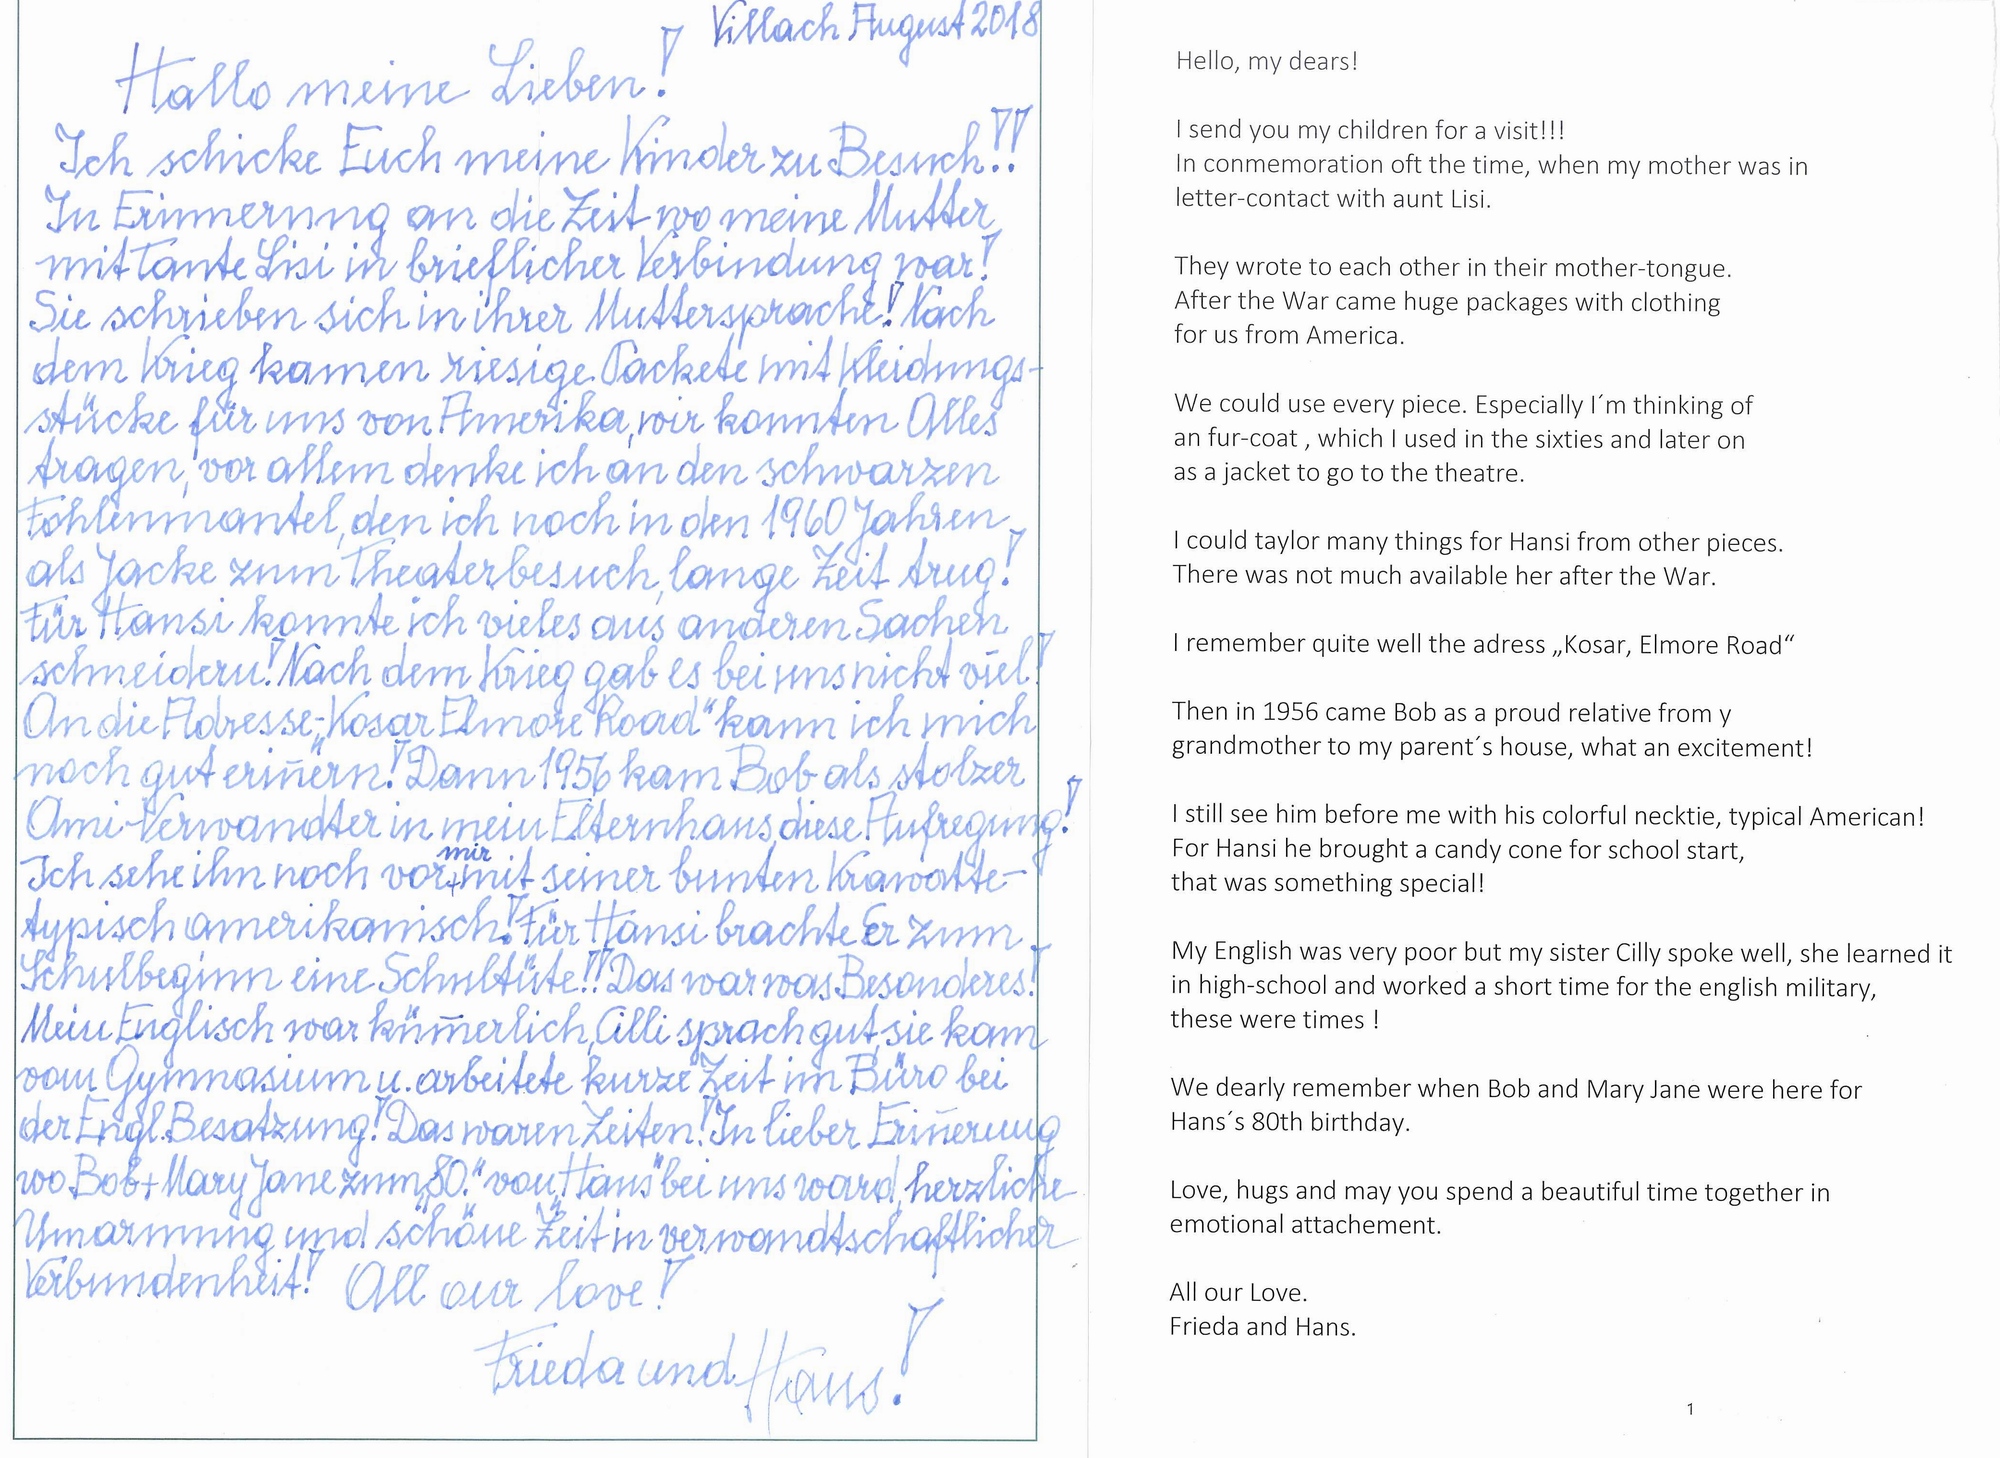 Villach August 2018
Hallo meine Lieben!
Ich schicke Euch meine Kinder zu Besuch!!
In Erinnerung an die Zeit wo meine Mutter
mit Tante Lisi in brieflicher Verbindung war!
Sie schrieben sich in ihrer Muttersprache! Nach
dem Krieg kamen riesige Packete mit Kleidungs-
stücke für uns von Amerika, wir konnten Alles
tragen, vor allem denke ich an den schwarzen
Fohlenmantel, den ich noch in den 1960 Jahren
als Jacke zum Theaterbesuch, lange Zeit trug!
Für Hansi konnte ich vieles aus anderen Sachen
schneidern! Nach dem Krieg gab es bei uns nicht viel!
An die Adresse, „Kosar Elmore Road“ kann ich mich
noch gut erin̄ern! Dann 1956 kam Bob als stolzer
Ami-Verwandter in mein Elternhaus, diese Aufregung!
Ich sehe ihn noch vor mir mit seiner bunten Krawatte-
typisch amerikanisch! Für Hansi brachte Er zum
Schulbeginn eine Schultüte!! Das war was Besonderes!
Mein Englisch war küm̄erlich, Cilli sprach gut, sie kam
vom Gymnasium u. arbeitete kurze Zeit im Büro bei
der Engl. Besatzung! Das waren Zeiten! In lieber Erin̄erung
wo Bob + Mary Jane zum „80.“ von „Hans“ bei uns ward, herzliche
Umarmung und schöne Zeit in verwandtschaftlicher
Verbundenheit! All our love!
Frieda und Hans!
Hello, my dears!
I send you my children for a visit!!!
In conmemoration oft the time, when my mother was in
letter-contact with aunt Lisi.
They wrote to each other in their mother-tongue.
After the War came huge packages with clothing
for us from America.
We could use every piece. Especially I´m thinking of
an fur-coat , which I used in the sixties and later on
as a jacket to go to the theatre.
I could taylor many things for Hansi from other pieces.
There was not much available her after the War.
I remember quite well the adress „Kosar, Elmore Road“
Then in 1956 came Bob as a proud relative from y
grandmother to my parent´s house, what an excitement!
I still see him before me with his colorful necktie, typical American!
For Hansi he brought a candy cone for school start,
that was something special!
My English was very poor but my sister Cilly spoke well, she learned it
in high-school and worked a short time for the english military,
these were times !
We dearly remember when Bob and Mary Jane were here for
Hans´s 80th birthday.
Love, hugs and may you spend a beautiful time together in
emotional attachement.
All our Love.
Frieda and Hans.
1